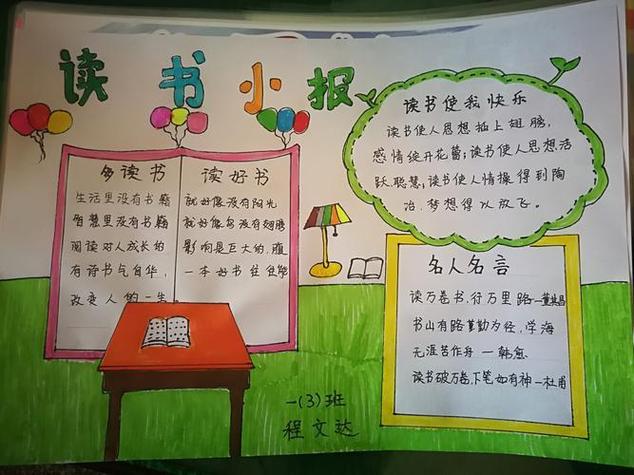 读书小报
多读书 读好书
生活里没有书籍 就好像没有阳光
智慧里没有书籍 就好像鸟没有翅膀
阅读对人成长的 影响是巨大的,
有诗书气自华, 一本好书往往能
改变人的一生。
读书使我快乐
读书使人思想插上翅膀,
感情绽开花蕾;读书使人思想活
跃,聪慧;读书使人情操得到陶
冶,梦想得以放飞。
名人名言
读万卷书,行万里路—董其昌
书山有路勤为径,学海
无涯苦作舟 —韩愈
读书破万卷,下笔如有神—杜甫
一(3)班
程文达